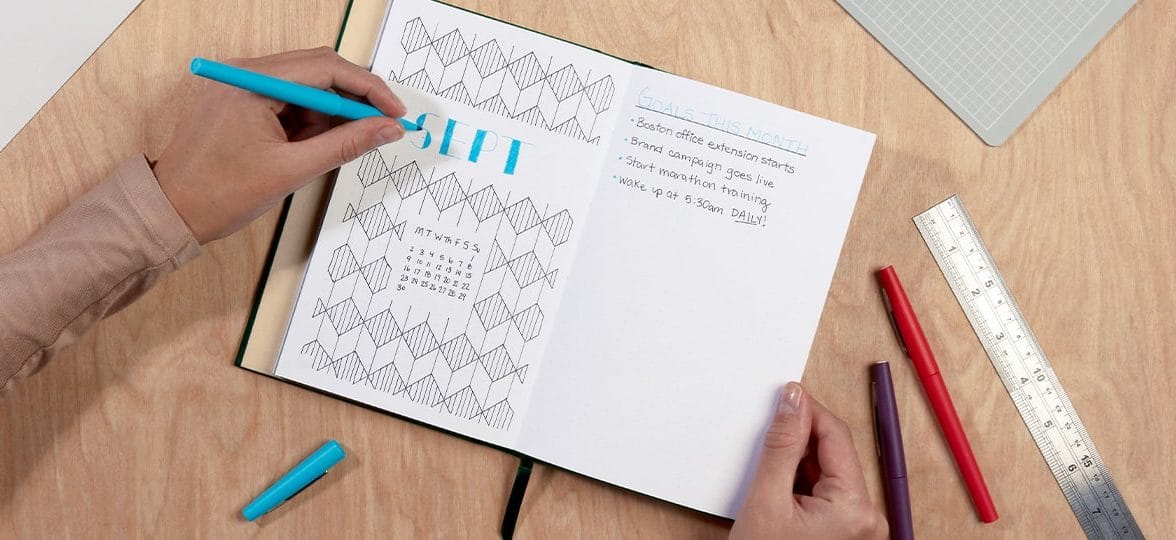 SEPT
M T W Th F S Su
1
2 3 4 5 6 7 8
9 10 11 12 13 14 15
16 17 18 19 20 21 22
23 24 25 26 27 28 29
30
GOALS THIS MONTH
• Boston office extension starts
• Brand campaign goes live
• Start marathon training
• Wake up at 5:30am DAILY!
1 2 3 4 5 6 7
5 10 15